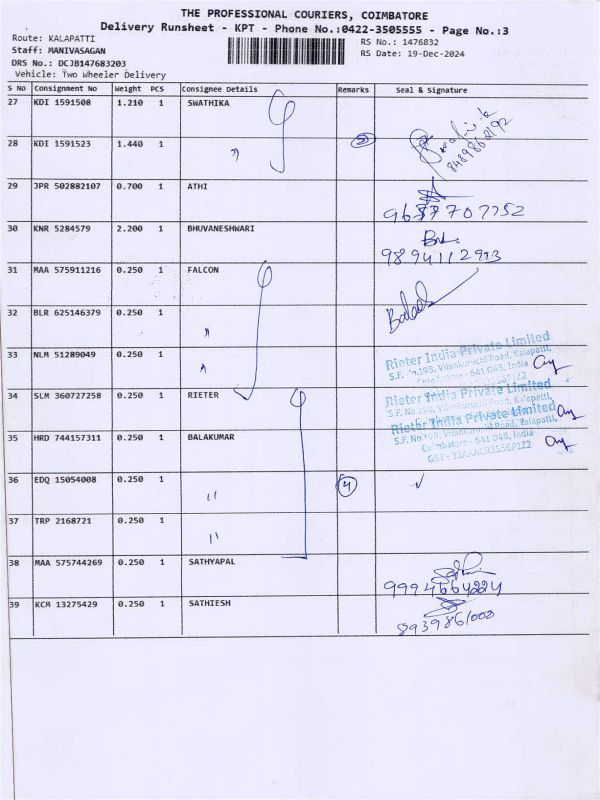 THE PROFESSIONAL COURIERS, COIMBATORE
Delivery Runsheet - KPT - Phone No.:0422-3505555 - Page No.:3
Route: KALAPATTI
RS No.: 1476832
Staff: MANIVASAGAN
RS Date: 19-Dec-2024
DRS No.: DCJB147683203
Vehicle: Two Wheeler Delivery
S No Consignment No Weight PCS Consignee Details Remarks Seal & Signature
27 KDI 1591508 1.210 1 SWATHIKA
28 KDI 1591523 1.440 1 " 2
8489862192
29 JPR 502882107 0.700 1 ATHI
30 KNR 5284579 2.200 1 BHUVANESHWARI
9894112993
31 MAA 575911216 0.250 1 FALCON
32 BLR 625146379 0.250 1 "
33 NLM 51289049 0.250 1 "
Rieter India Private Limited
S.F. No.198, Vilankurichi Road, Kalapatti,
Coimbatore - 641 048, India
34 SLM 360727258 0.250 1 RIETER
Rieter India Private Limited
S.F. No.198, Vilankurichi Road, Kalapatti,
35 HRD 744157311 0.250 1 BALAKUMAR
Rieter India Private Limited
S.F. No.198, Vilankurichi Road, Kalapatti,
Coimbatore - 641 048, India
36 EDQ 15054008 0.250 1 " 4
37 TRP 2168721 0.250 1 "
38 MAA 575744269 0.250 1 SATHYAPAL
9994664224
39 KCM 13275429 0.250 1 SATHIESH
8939861000